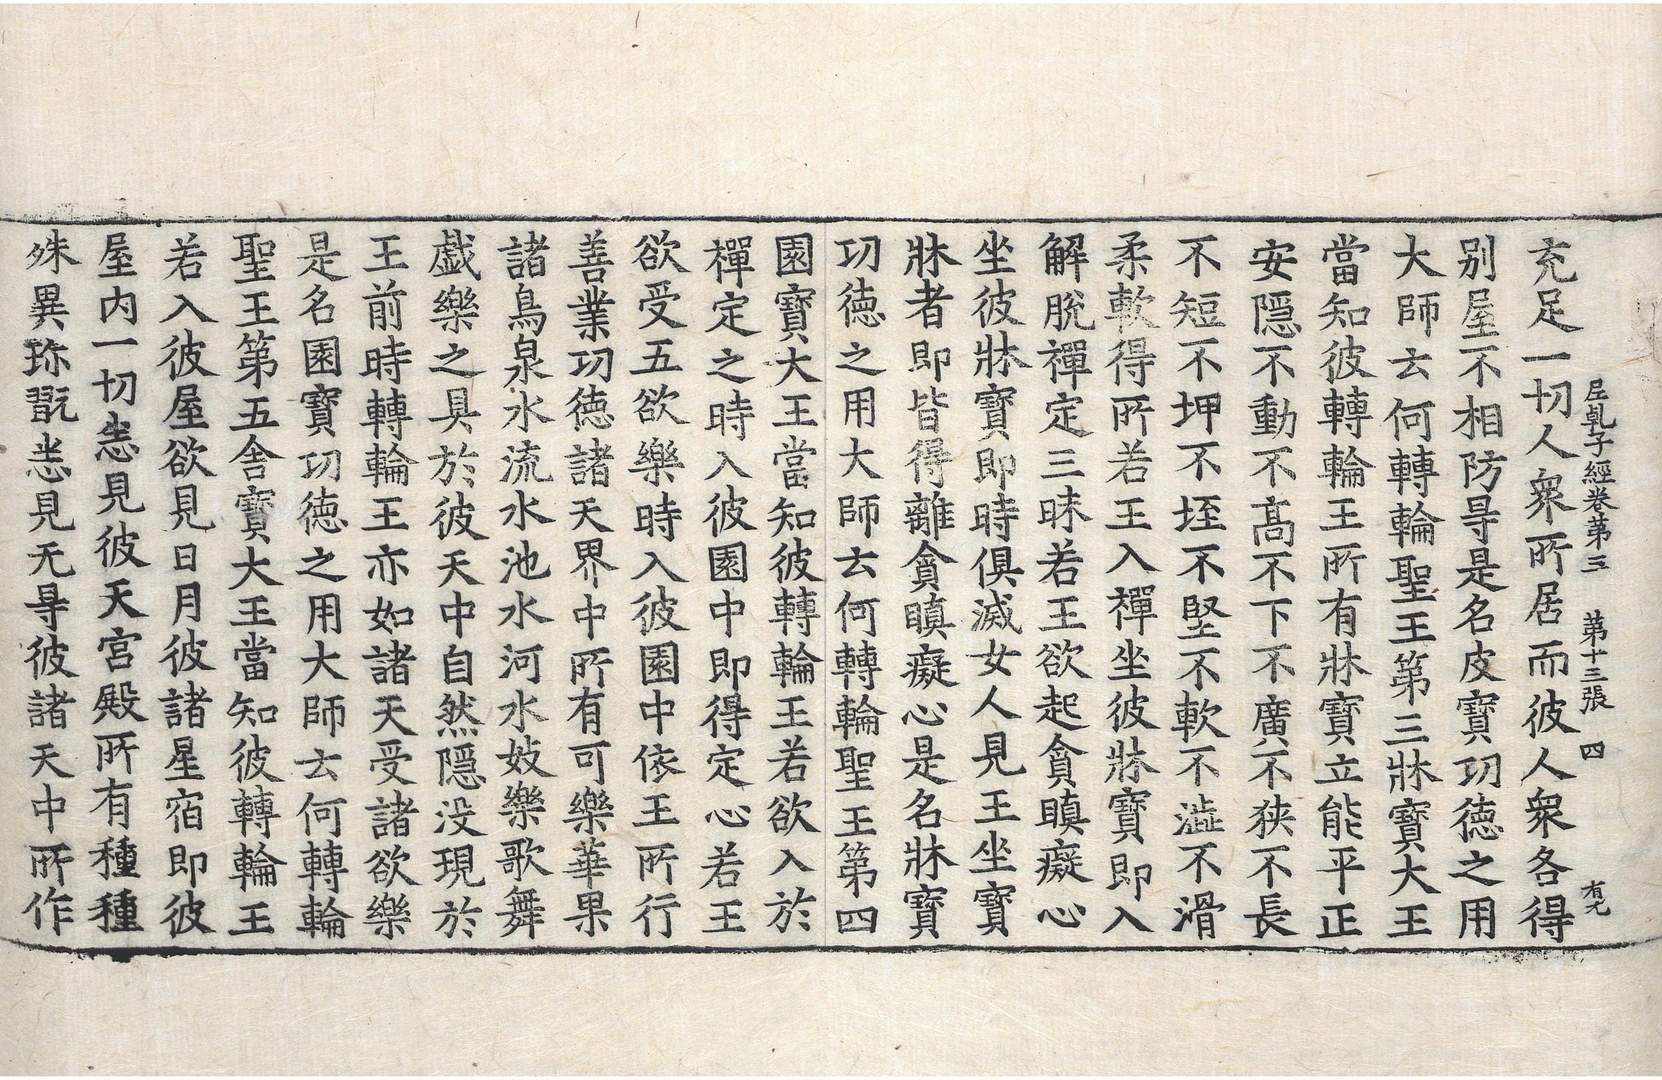 尼乹子經卷苐三 苐十三張 四 有元
充足一切人衆所居而彼人衆各得
别屋不相防㝵是名皮寶功徳之用
大師云何轉輪聖王第三牀寶大王
當知彼轉輪王所有牀寶立能平正
安隱不動不髙不下不廣不狭不長
不短不坤不垤不堅不軟不澁不滑
柔軟得所若王入禪坐彼牀寶即入
解脫禪定三昧若王欲起貪瞋癡心
坐彼牀寶即時俱滅女人見王坐寶
牀者即皆得離貪瞋癡心是名牀寶
功徳之用大師云何轉輪聖王第四
園寶大王當知彼轉輪王若欲入於
禪定之時入彼園中即得定心若王
欲受五欲樂時入彼園中依王所行
善業功徳諸天界中所有可樂華果
諸鳥泉水流水池水河水妓樂歌舞
戯樂之具於彼天中自然隱没現於
王前時轉輪王亦如諸天受諸欲樂
是名園寶功徳之用大師云何轉輪
聖王第五舎寶大王當知彼轉輪王
若入彼屋欲見日月彼諸星宿即彼
屋内一切悉見彼天宫殿所有種種
殊異珎翫悉見无㝵彼諸天中所作